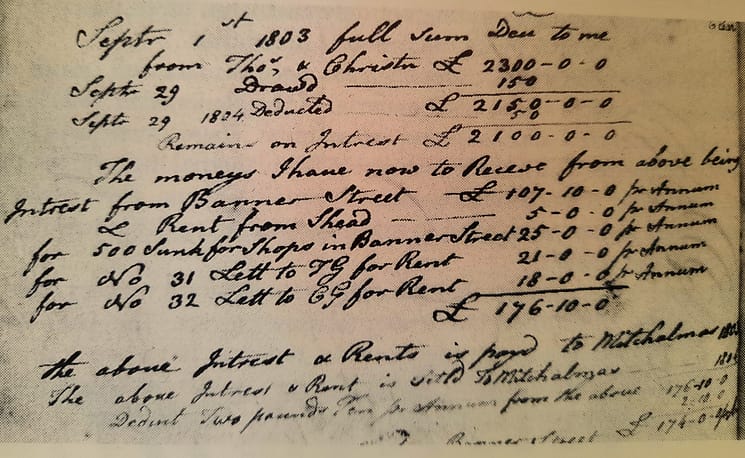 Septr 1st 1803 full Sum Deu to me
from Thos, & Christn £ 2300-0-0
Septr 29 Drawd 150
£ 2150-0-0
Septr 29 1804 Deducted 50
Remain on Intrest £ 2100-0-0
The moneys I have now to Receve from above being
Intrest from Banner Street £ 107-10-0 pr Annum
& Rent from Shead 5-0-0 pr Annum
for 500 Sunk for Shops in Banner Street 25-0-0 pr Annum
for No 31 Lett to TG for Rent 21-0-0 pr Annum
for No 32 Lett to CG for Rent 18-0-0 pr Annum
£ 176-10-0
the above Intrest & Rents is payd to Mitchalmas
The above Intrest & Rent is Settd To Mitchalmas
Deduct Two pounds Ten pr Annum from the above 176-10-0
2-10-0
£ 174-0-0
Banner Street